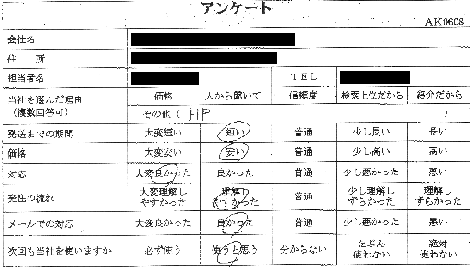 アンケート
AK0608
会社名
住 所
担当者名 TEL
当社を選んだ理由 価格 人から聞いて 信頼度 検索上位だから 紹介だから
(複数回答可) その他( HP
発送までの期間 大変短い 短い 普通 少し長い 長い
価格 大変安い 安い 普通 少し高い 高い
対応 大変良かった 良かった 普通 少し悪かった 悪い
発注の流れ 大変理解し 理解し 普通 少し理解し 理解し
やすかった やすかった ずらかった ずらかった
メールでの対応 大変良かった 良かった 普通 少し悪かった 悪い
次回も当社を使いますか 必ず使う 使うと思う 分からない たぶん 絶対
使わない 使わない